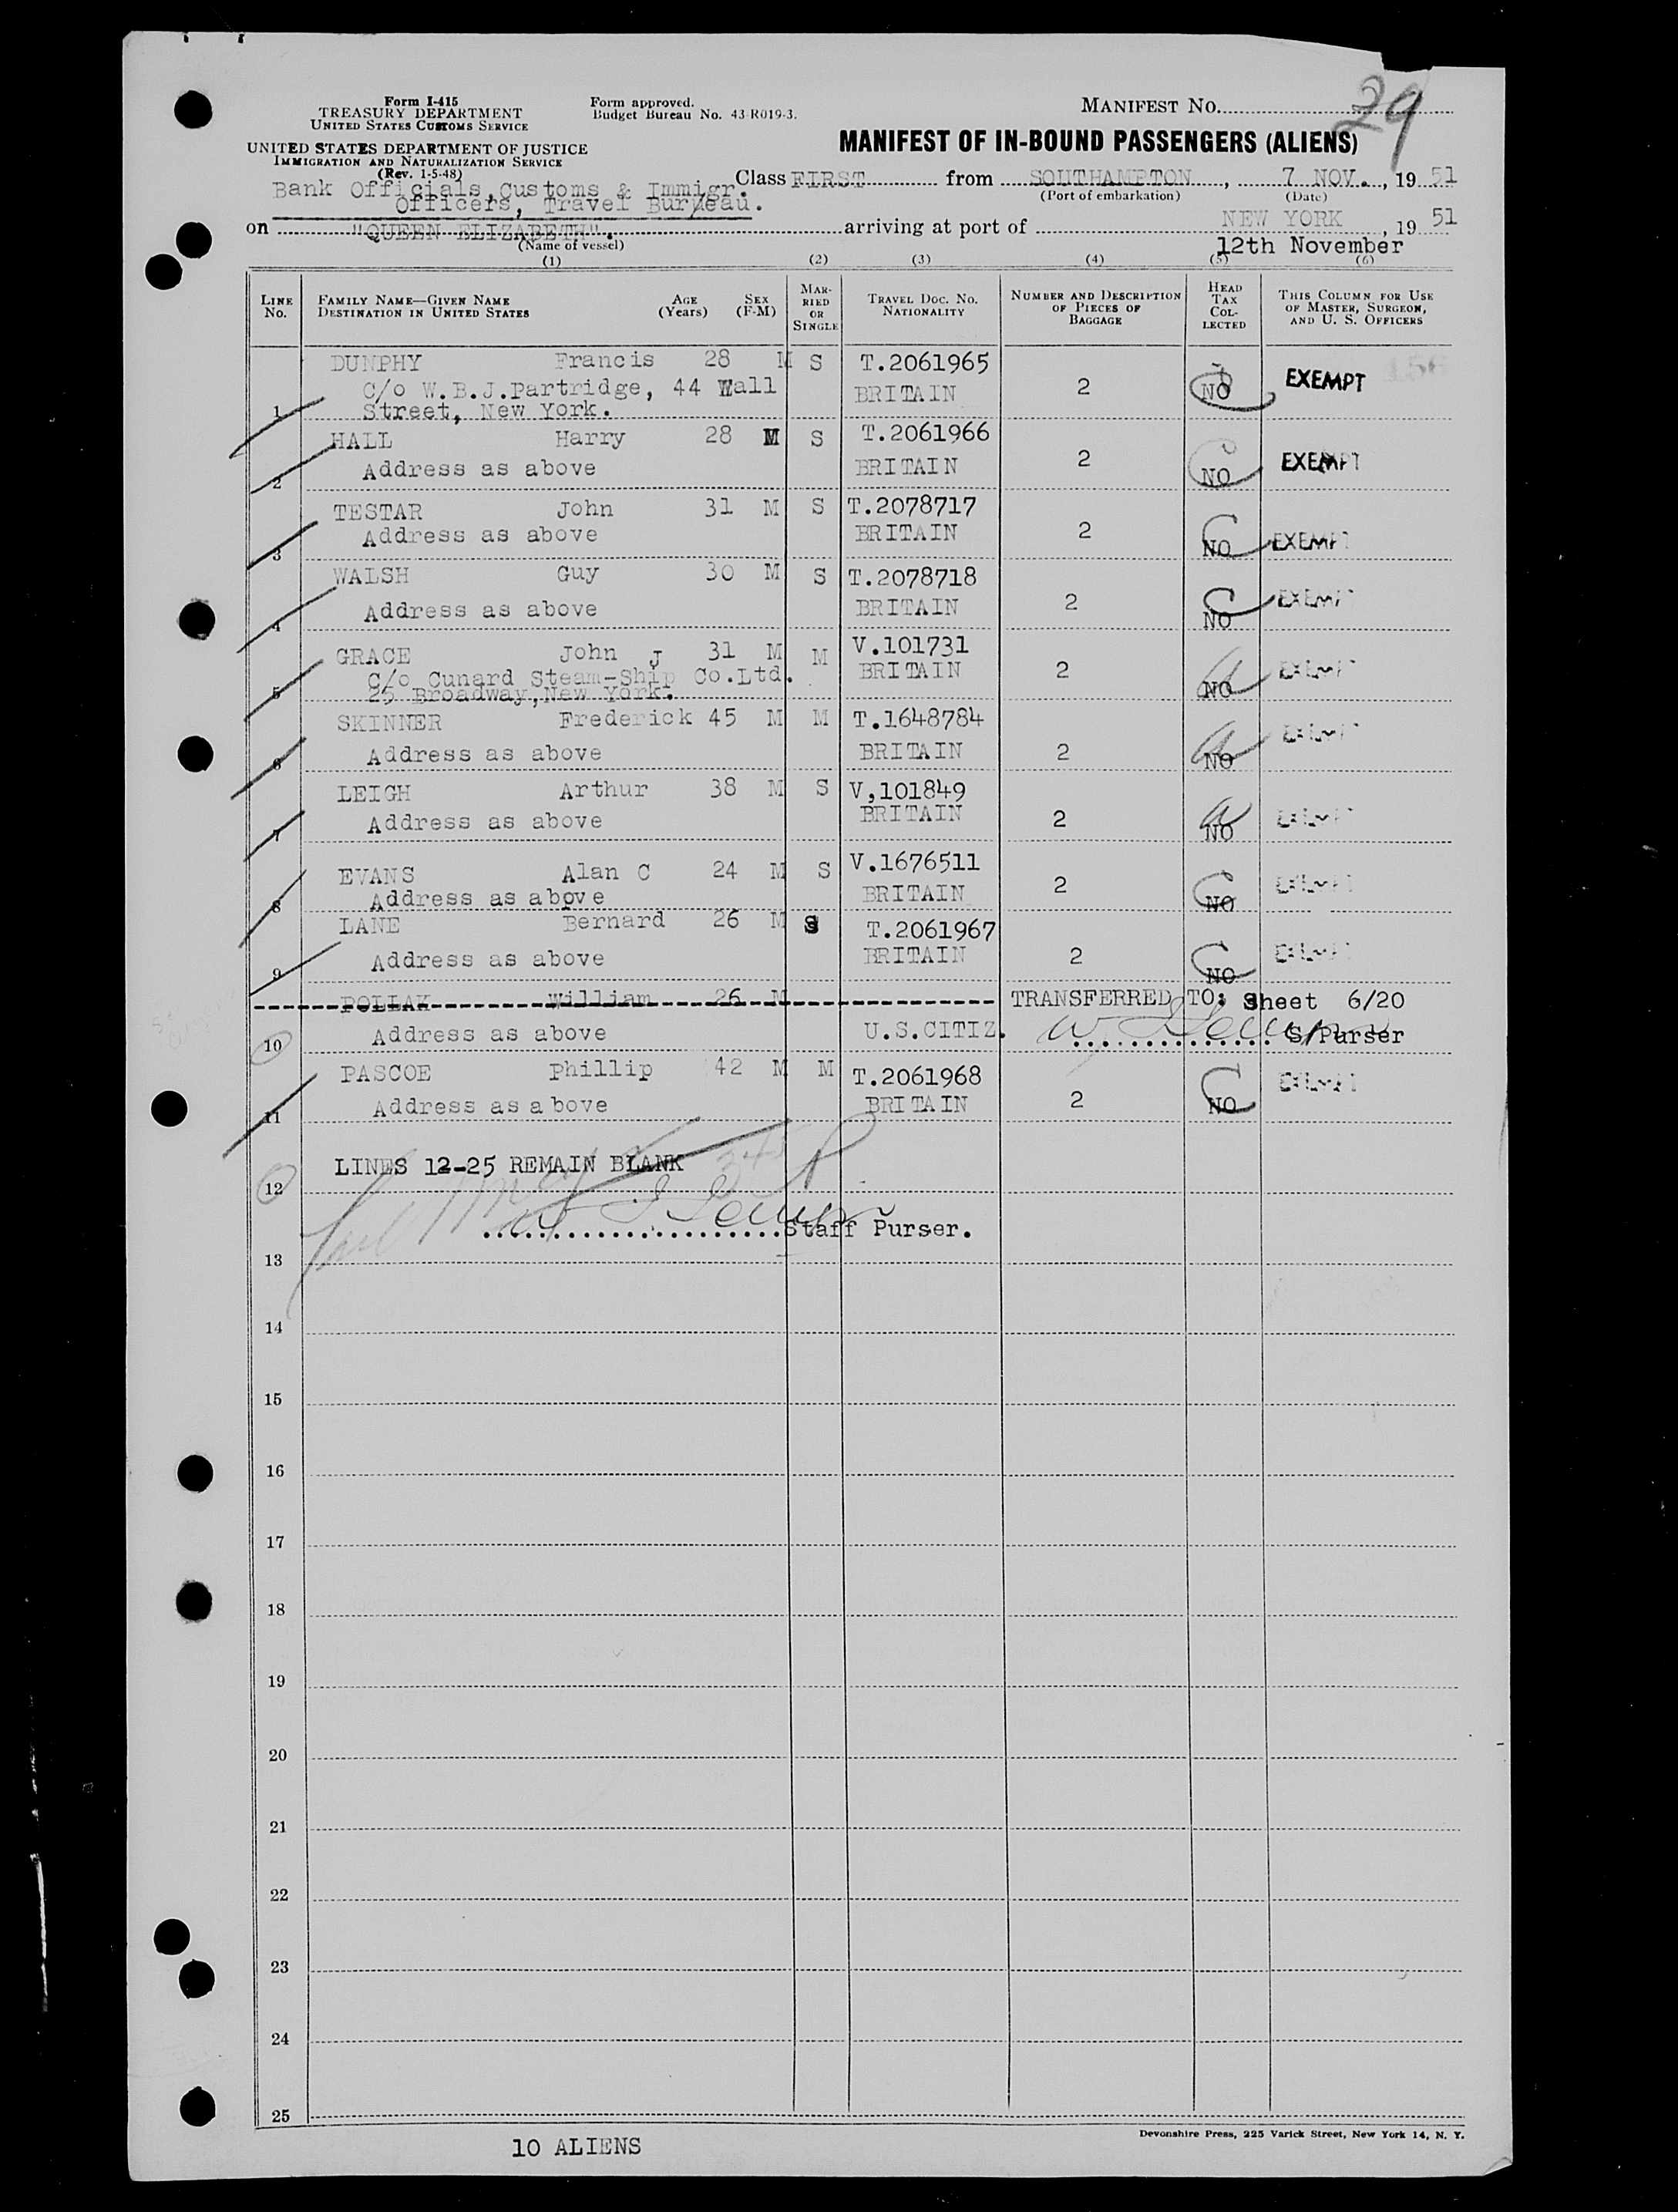 Form I-415
TREASURY DEPARTMENT
UNITED STATES CUSTOMS SERVICE
UNITED STATES DEPARTMENT OF JUSTICE
IMMIGRATION AND NATURALIZATION SERVICE
(Rev. 1-5-48)
Form approved.
Budget Bureau No. 43-R019-3.
MANIFEST No. 29
MANIFEST OF IN-BOUND PASSENGERS (ALIENS)
Bank Officials, Customs & Immigr.
Officers, Travel Bureau.
Class FIRST from SOUTHAMPTON, 7 NOV., 1951
(Port of embarkation) (Date)
on "QUEEN ELIZABETH". arriving at port of NEW YORK, 19 51
(Name of vessel) 12th November
(1) (2) (3) (4) (5) (6)
LINE No. FAMILY NAME—GIVEN NAME DESTINATION IN UNITED STATES AGE (Years) SEX (F-M) MARRIED OR SINGLE TRAVEL DOC. NO. NATIONALITY NUMBER AND DESCRIPTION OF PIECES OF BAGGAGE HEAD TAX COLLECTED THIS COLUMN FOR USE OF MASTER, SURGEON, AND U. S. OFFICERS
DUNPHY Francis 28 M S T.2061965
C/o W.B.J.Partridge, 44 Wall BRITAIN 2 NO EXEMPT
1 Street, New York.
HALL Harry 28 M S T.2061966
Address as above BRITAIN 2 NO EXEMPT
2
TESTAR John 31 M S T.2078717
Address as above BRITAIN 2 NO EXEMPT
3
WALSH Guy 30 M S T.2078718
Address as above BRITAIN 2 NO EXEMPT
4
GRACE John J 31 M M V.101731
C/o Cunard Steam-Ship Co.Ltd. BRITAIN 2 NO EXEMPT
5 25 Broadway, New York.
SKINNER Frederick 45 M M T.1648784
Address as above BRITAIN 2 NO EXEMPT
6
LEIGH Arthur 38 M S V,101849
Address as above BRITAIN 2 NO EXEMPT
7
EVANS Alan C 24 M S V.1676511
Address as above BRITAIN 2 NO EXEMPT
8
LANE Bernard 26 M S T.2061967
Address as above BRITAIN 2 NO EXEMPT
9
POLLAK William 26 M TRANSFERRED TO: Sheet 6/20
10 Address as above U.S.CITIZ. S/Purser
PASCOE Phillip 42 M M T.2061968
Address as above BRITAIN 2 NO EXEMPT
11
LINES 12-25 REMAIN BLANK
12
Staff Purser.
13
14
15
16
17
18
19
20
21
22
23
24
25
10 ALIENS
Devonshire Press, 225 Varick Street, New York 14, N. Y.